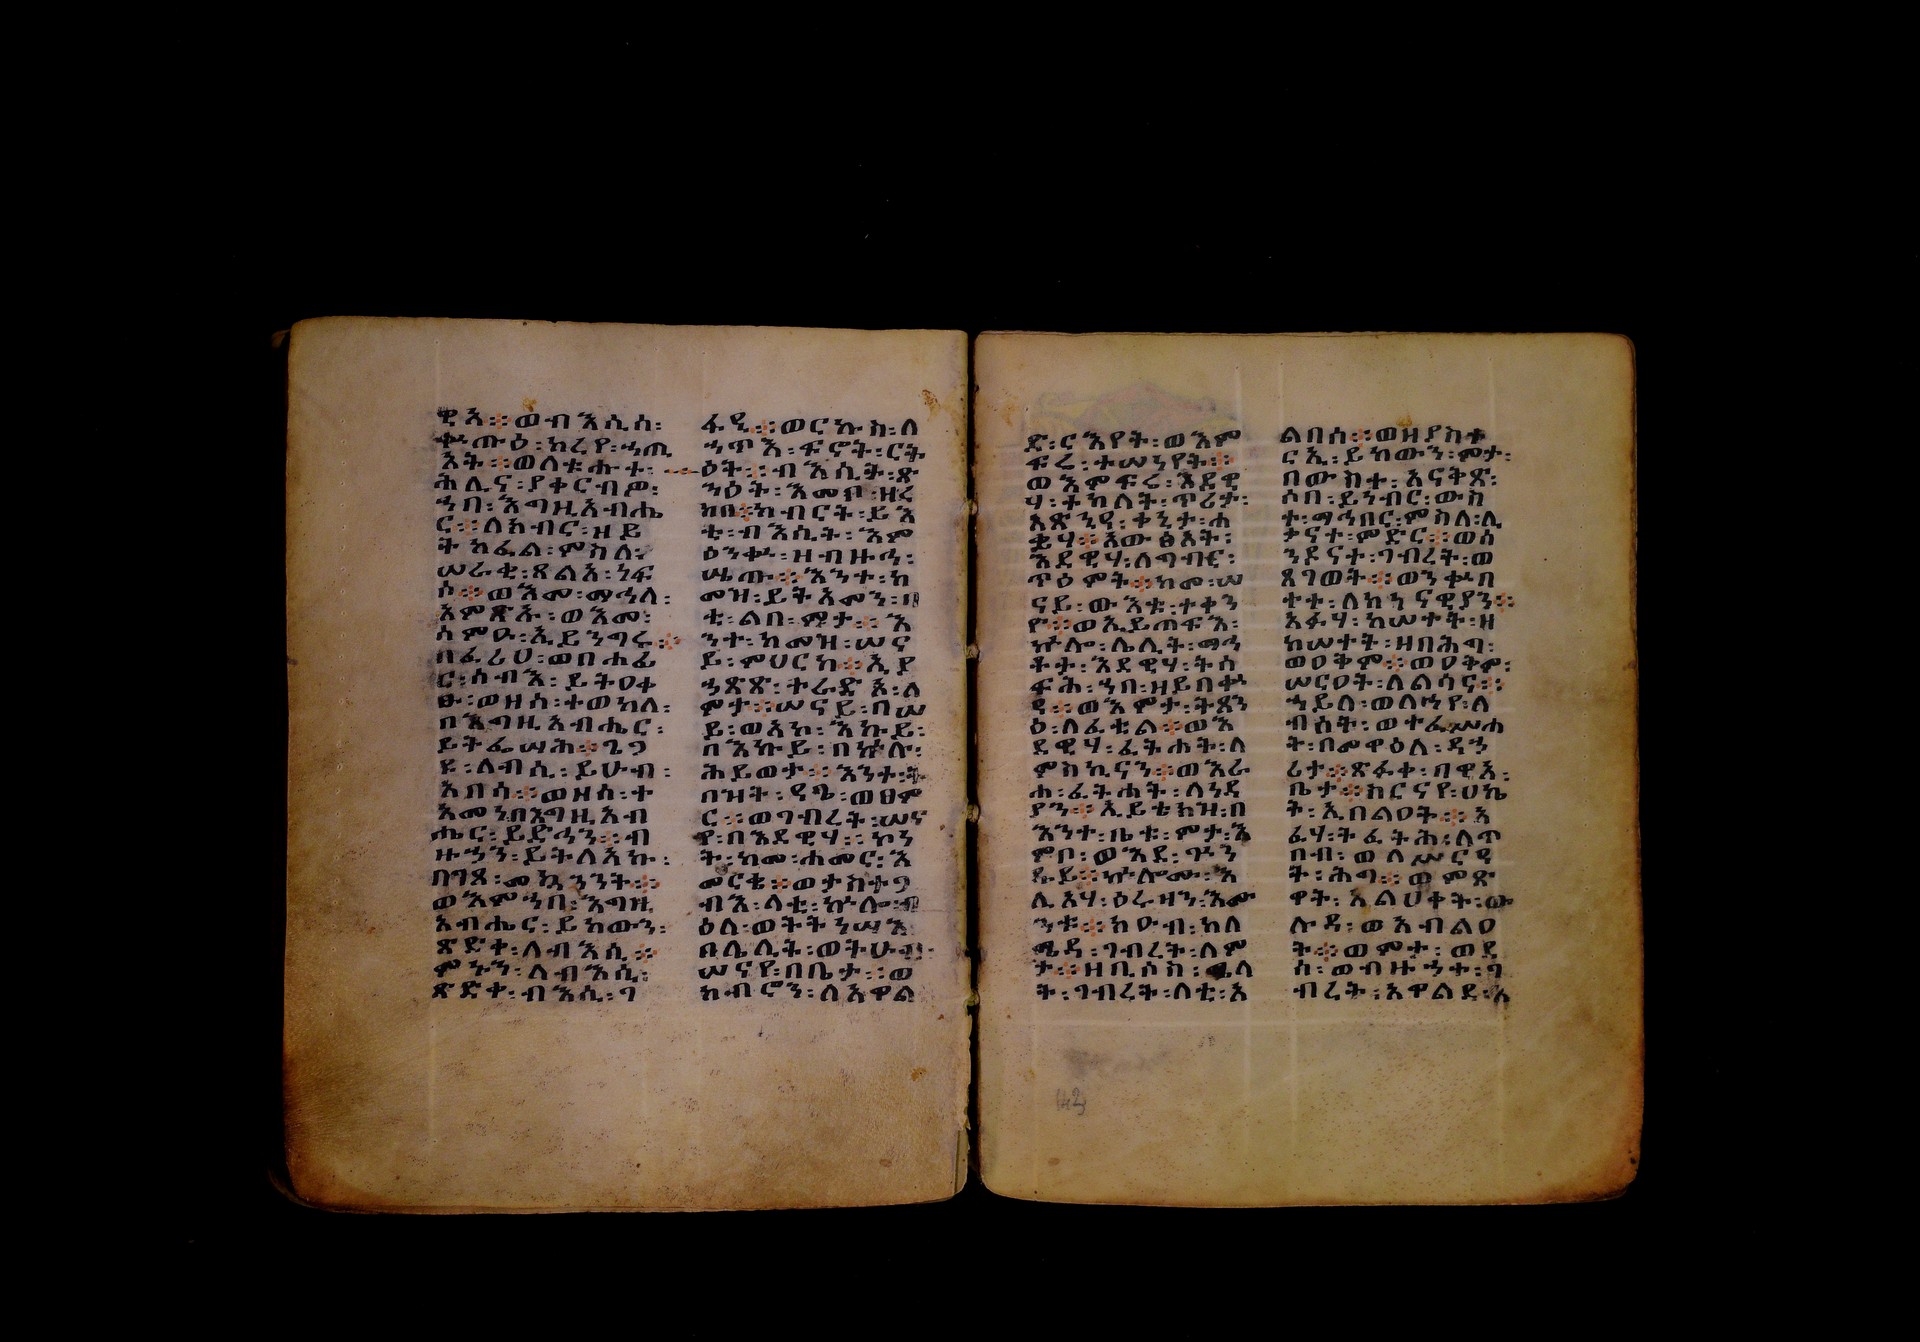 ዊእ። ወብእሲ ሰ፡
ቍጡዕ፡ከረየ፡ኀጢ
አት። ወለቱሑተ፡
ሕሊና፡ያቀርብዎ፡
ኀበ፡እግዚአብሔ
ር። ለክብር፡ዘይ
ትካፈል፡ምስለ፡
ሠራቂ፡ጸልአ፡ነፍ
ሶ። ወእመ፡ማኀለ፡
አምጽኡ፡ወእመ፡
ሰምዑ፡ኢይነግሩ።
በፈሪሀ፡ወበሐፊ
ር፡ሰብእ፡ይትዐቀ
ፁ፡ወዘሰ፡ተወከለ፡
በእግዚአብሔር፡
ይትፌሣሕ። ጌጋ
ዩ፡ለብእሲ፡ይሁብ፡
አበሳ። ወዘሰ፡ተ
አመነ በእግዚአብ
ሔር፡ይድኅን። ብ
ዙኃን፡ይትለአኩ፡
በገጸ፡መኳንንት።
ወእምኀበ፡እግዚ
አብሔር፡ይከውን፡
ጽድቀ፡ለብእሲ።
ምኑን፡ለብእሲ፡
ጽድቀ፡ብእሲ፡ገ
ፋዒ። ወርኩስ፡ለ
ኀጥእ፡ፍኖት፡ርት
ዕት። ብእሲት፡ጽ
ንዕት፡እመቦ፡ዘረ
ከበ። ክብርት፡ይእ
ቲ፡ብእሲት፡እም
ዕንቍ፡ዘብዙኅ፡
ሤጡ። እንተ፡ከ
መዝ፡ይትአመን፡በ
ቲ፡ልበ፡ምታ። እ
ንተ፡ከመዝ፡ሠና
ይ፡ምህርካ። ኢያ
ኀጽጽ፡ተራድኦ፡ለ
ምታ። ሠናይ፡በሠ
ይ፡ወአኮ፡እኩይ፡
በእኩይ፡በኵሉ፡
ሕይወታ። እንተ፡ት
በዝት፡ዳጔ፡ወፀም
ር። ወገብረት፡ሠና
የ፡በእደዊሃ። ኮነ
ት፡ከመ፡ሐመር፡እ
መርቄ። ወታስተጋ
ብእ፡ላቲ፡ኵሎ፡ብ
ዕለ፡ወትትነሣእ
በሌሊት፡ወትሁብ፡
ሠናየ፡በቤታ። ወ
ክብሮን፡ለአዋል
ድ፡ርእየት፡ወእም
ፍሬ፡ተሠነየት።
ወእምፍሬ፡እደዊ
ሃ፡ተከለት፡ጥሪታ፡
አጽንዓ፡ቀኒታ፡ሐ
ቌሃ። አውፅአት፡
እደዊሃ፡ለግብር፡
ጥዕምት። ከመ፡ሠ
ናይ፡ውእቱ፡ተቀን
ዮ። ወኢይጠፍእ፡
ኵሎ፡ሌሊት፡ማኅ
ቶታ፡እደዊሃ፡ትሰ
ፍሕ፡ኀበ፡ዘይበቍ
ዓ። ወእምታ፡ትጸን
ዕ፡ለፈቲል። ወእ
ደዊሃ፡ፈትሐት፡ለ
ምስኪናን። ወእራ
ሐ፡ፈትሐት፡ለነዳ
ያን። ኢይቴክዝ፡በ
እንተ፡ቤቱ፡ምታ፡እ
ምቦ፡ወእደ፡ጐን
ዱይ። ኵሎሙ፡እ
ሊአሃ፡ዕሩዛን፡እሙ
ንቱ። ክዑብ፡ክለ
ሜዳ፡ገብረት፡ለም
ታ። ዘቢሶስ፡
ት፡ገብረት፡ለቲ፡አ
ልበሰ። ወዘያስተ
ርኢ፡ይከውን፡ምታ፡
በውስተ፡አናቅጽ፡
ሶበ፡ይነብር፡ውስ
ተ፡ማኅበር፡ምስለ፡ሊ
ቃናተ፡ምድር። ወሰ
ንዶናተ፡ገብረት፡ወ
ጸገወት። ወንቍበ
ተተ፡ለከነናዊያን።
አፉሃ፡ከሠተት፡ዘ
ከሠተት፡ዘበሕግ፡
ወዐቅም። ወዐቅም፡
ሠርዐት፡ለልሳና።
ኀይለ፡ወለኀየ፡ለ
ብሰት፡ወተፈሥሐ
ት፡በመዋዕለ፡ዳኃ
ሪታ። ጽፉቀ፡በዊእ፡
ቤታ። ከርናየ፡ሀኬ
ት፡ኢበልዐት። አ
ፈሃ፡ትፈትሕ፡ለጥ
በብ፡ወለሥርዓ
ት፡ሕግ። ወምጽ
ዋት፡አልሀቀት፡ው
ሉዳ፡ወአብልዐ
ት። ወምታ፡ወደ
ሳ፡ወብዙኃተ፡ገ
ብረት፡አዋልደ፡አ
142